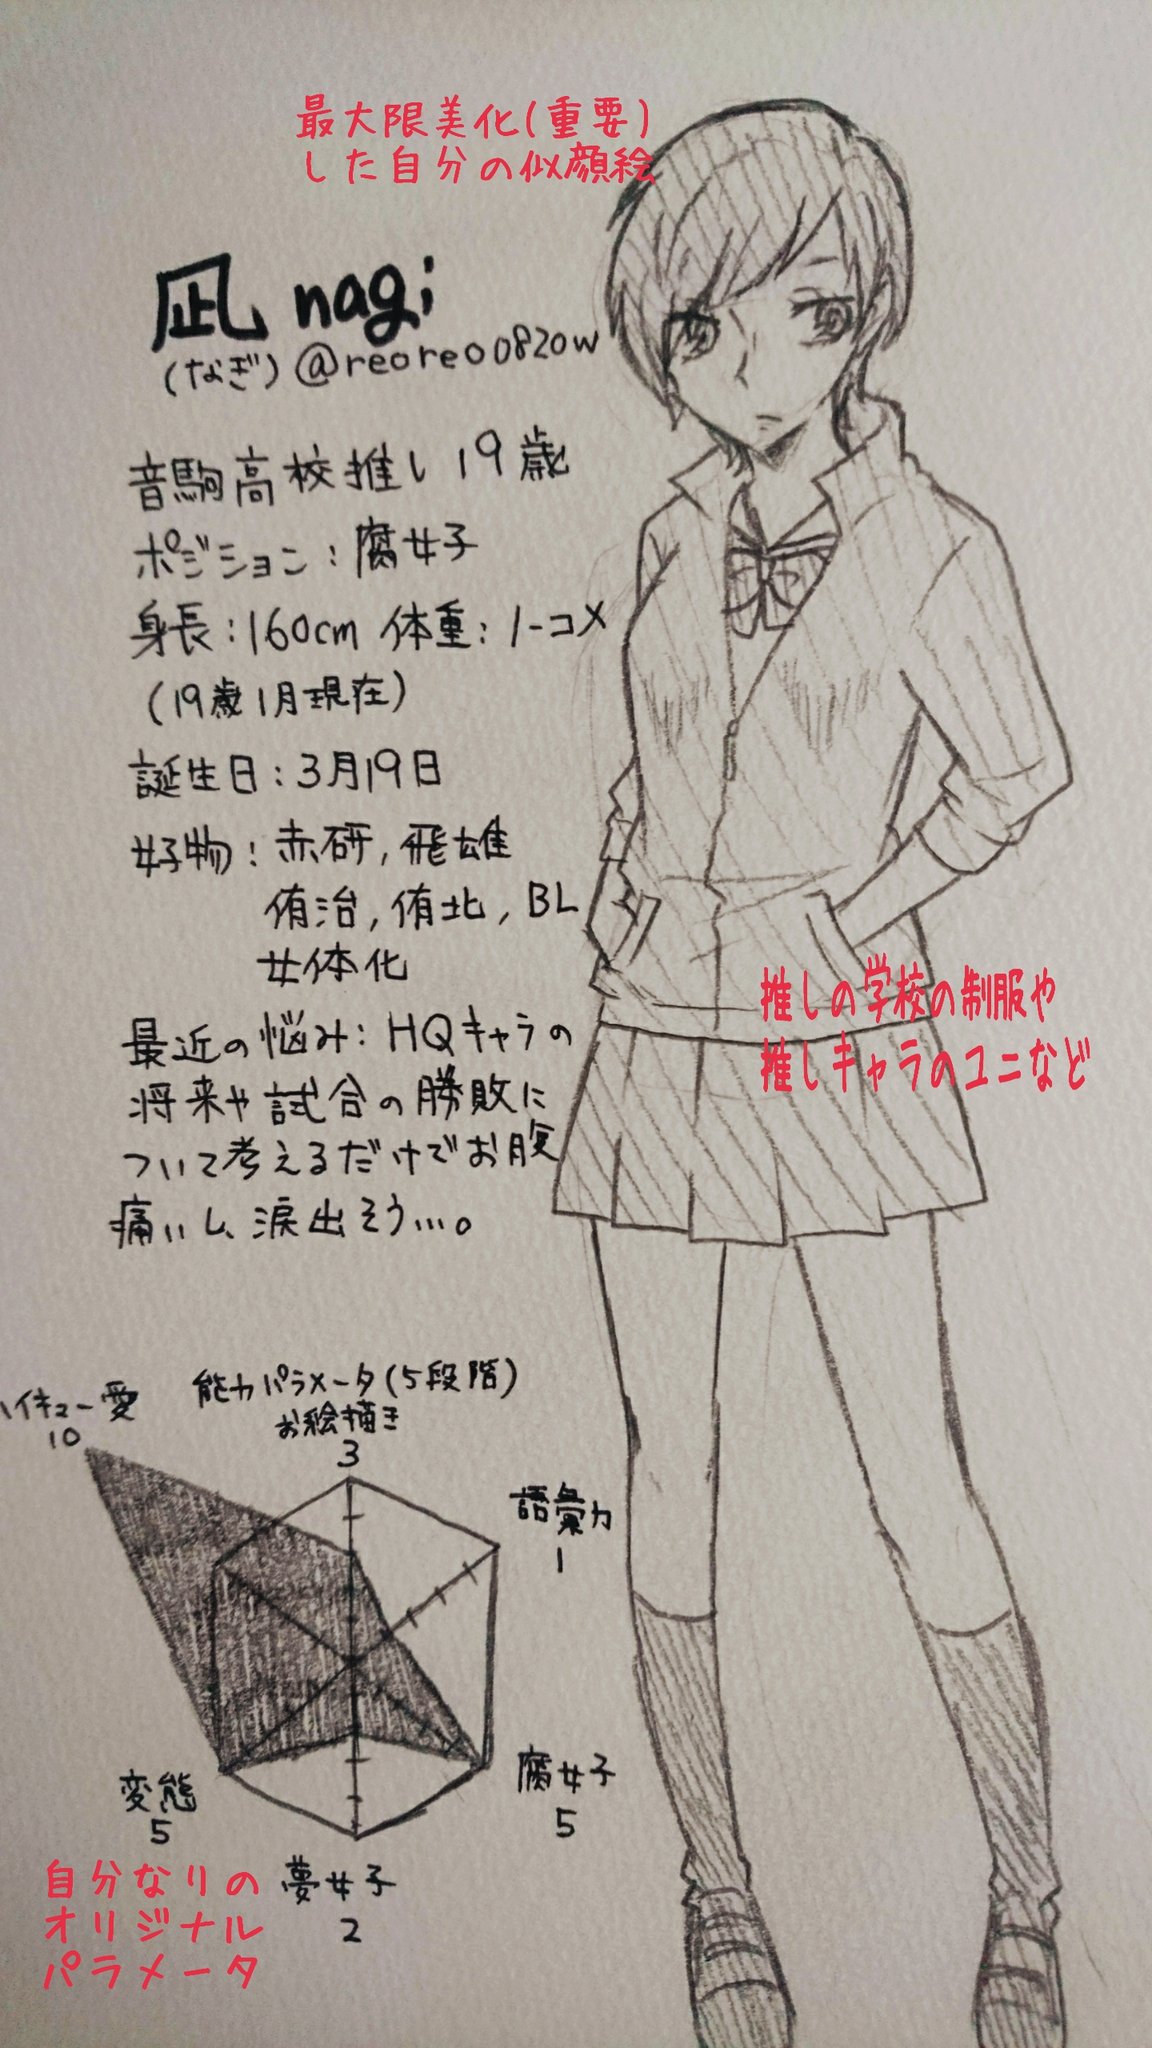 最大限美化(重要)
した自分の似顔絵
凪 nagi
(なぎ) @reoreo0820w
音駒高校推し 19歳
ポジション：腐女子
身長：160cm 体重：ノーコメ
(19歳1月現在)
誕生日：3月19日
好物：赤研, 飛雄
侑治, 侑北, BL
女体化
最近の悩み：HQキャラの
将来や試合の勝敗に
ついて考えるだけでお腹
痛いし、涙出そう…。
推しの学校の制服や
推しキャラのユニなど
能力パラメータ(5段階)
ハイキュー愛
10
お絵描き
3
語彙力
1
変態
5
腐女子
5
夢女子
2
自分なりの
オリジナル
パラメータ